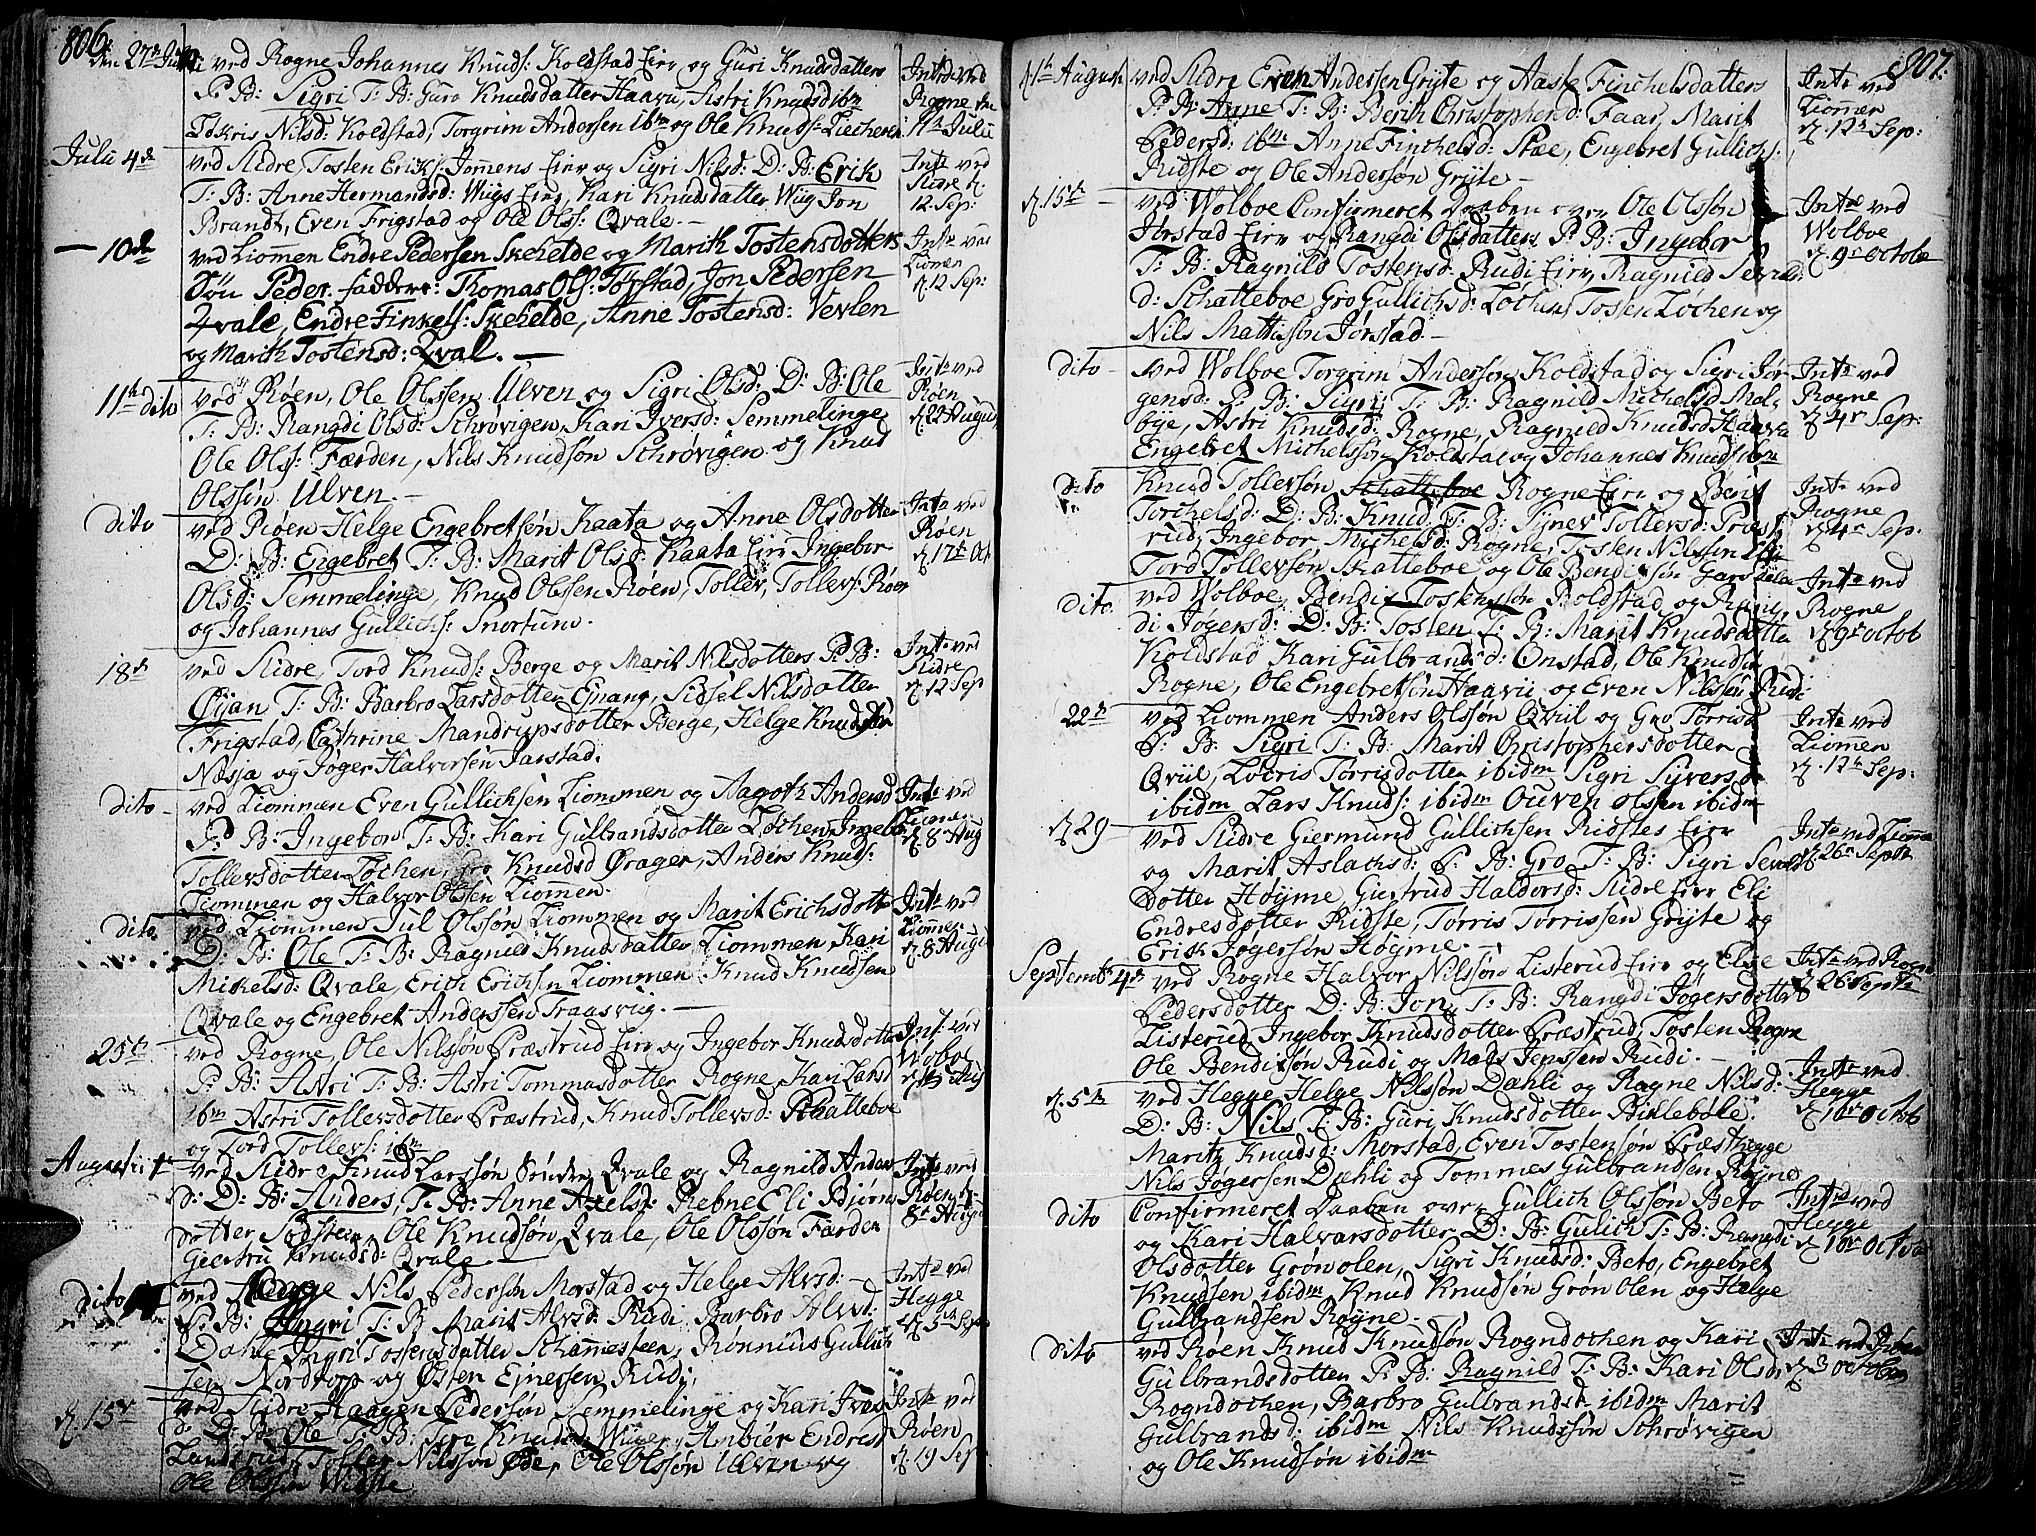 806.
den 27de Juni ved Rogne Johannes Knuds: Koldstad Eier og Guri Knudsdatters
P. B: Sigri T: B: Guro Knudsdatter Haavu, Astri Knudsd ibm
Nilsd: Koldstad, Torgrim Andersen ibm og Ole Knuds:
Int: ved
Rogne
Julii
Julii 4de
ved Slidre, Tosten Eriks: Jomens Eier og Sigri Nilsd: D: B: Erik
T: B: Anne Hermandsd: Wiigs Eier, Kari Knudsdatter Wiig Jon
Brandt, Even Frigstad og Ole Olss: Qvale.—
Int: ved
Slidre d.
12. Sep:
— 10de
ved Liomen Endre Pedersen Skehelde og Marith Tostensdotters
Søn Peder. faddere: Thomas Ols: Torstad, Jon Pedersen
Qvale, Endre Finkels: Skehelde, Anne Tostensd: Vevlen
og Marith Tostensd: Qval. —
Int: ved
Liomen
d. 12 Sep:
11te dito
ved Røen, Ole Olssen Ulven og Sigri Olsd: D: B: Ole
T: B: Rangdi Olsd: Schrøvigen, Kari Iversd: Semmelinge
Ole Olss: Færden, Nils Knudsøn Schrøvigen og Knud
Olssøn Ulven.—
Int: ved
Røen
d. 22 Augus
dito
ved Røen Helge Engebretsøn Kaata og Anne Olsdotter
D: B: Engebret T: B: Marit Olsd: Kaata Eier Ingebor
Olsd: Semmelinge, Knud Olssen Røen, Tollev Tollevs: Røen
og Johannes Gullichs: Snortum.
Int: ved
Røen
d. 17de Oct
18de
ved Slidre, Tord Knuds: Berge og Marit Nilsdotters P. B:
Øijan T: B: Barbro Larsdotter Qvang, Sidsel Nilsdotter
Frigstad, Cathrine Mandrupsdotter Berge, Helge Knudsøn
Næsja og Jøger Halversen Jarstad.
Int: ved
Slidre
d. 12 Sep
dito —
ved Liommen Even Gullichsen Liommen og Aagoth Andersd
P. B: Ingebor T: B: Kari Gulbrandsdotter Løchen, Ingebor
Tollevsdotter Løchen, Gro Knudsd Ørager, Anders Knuds:
Liommen og Halvor Olssen Liommen.
Int: ved
Liome
d. 8 Aug
dito.
ved Liommen Jul Olssøn Liommen og Marit Erichsdotte
D: B: Ole T: B: Ragnild Knudsdatter Liommen, Kari
Mikelsd: Qvale, Erich Erichsen Liommen, Knud Knudsen
Qvale og Engebret Andersen Traasviig.—
Int: ved
Liomen
d. 8 Aug
25de
ved Rogne, Ole Nilssøn Præstrud Eier og Ingebor Knudsdotte
P. B: Astri T: B: Astri Tommasdotter Rogne, Kari Larsd
ibm Astri Tollevsdotter Præstrud, Knud Tollevsd: Schatteboe
og Tord Tollevs: ibm
Int: ved
Wolboe
Augustii 1te
ved Slidre Knud Larssøn Søndre Qvale og Ragnild Anders
d: D: B: Anders, T: B: Anne Axelsd: Rebne Eli Bjørns
dotter Sodsteen, Ole Knudsøn, Qvale, Ole Olssøn Færden
Giertru Knudsd: Qvale.—
Int: ved
Røen
8de Augu
Dito
ved Hegge Nils Pedersen Morstad og Helge Alvsd:—
P. B: Ingri T: B Marit Alvsd: Rudi, Barbro Alvsd:
Dahle Ingri Tostensdotter Schammesteen, Rønnius Gullich
sen Nordtorp og Østen Ejnersen Rudi.
Int: ved
Hegge
d. 5te Sept
d. 15de
ved Slidre Haagen Pedersøn Semmelinge og Kari Ivers
d: D: B: Ole T: B: Siri Knudsd: Wiigen, Anbiør Endresd
Landsrud, Tollev Nilssøn Øde, Ole Olssøn Ulven og
Ole Olssøn Widste
Int: ved
Røen
d. 19 Sep
807.
d. 1te August
ved Slidre Even Andersen Gryte og Aaste Finchelsdatters
P. B: Anne T: B: Berit Christophersd: Faar, Marit
Pedersd: ibm Anne Finchelsd: Stee, Engebret Gullichs:
Ridste og Ole Andersøn Gryte —
Int: ved
Liomen
d. 12te Sep:
d. 15de —
ved Wolboe Confirmeret Daaben over Ole Olssøn
Jørstad Eier og Rangdi Olsdatters P. B: Ingebor
T: B: Ragnild Tostensd: Rudi Eier, Ragnild
d: Schatteboe Gro Gullichsd: Løchen, Tosten Løchen og
Nils Mattissøn Jørstad.—
Int: ved
Wolboe
d. 9de Octobe
dito —
ved Wolboe Torgrim Andersøn Koldstad og Sigri Jør
gensd: P. B: Sigri T: B: Ragnild Michelsd Mels
bye, Astri Knudsd: Rogne, Ragnild Knudsd Haavu
Engebret Michelssøn Koldstad og Johannes Knuds: ibm
Int: ved
Rogne
d. 4de Sep:
dito
Knud Tollevsøn Schatteboe Rogne Eier og Berit
Torchelsd: D: B: Knud T: B: Syner Tollevsd: Præst
rud, Ingebor Michelsd: Rogne, Tosten Nilssøn
Tord Tollevsøn Skatteboe og Ole Bendixsøn
Int: ved
Rogne
d. 4de Sep.
dito.
ved Wolboe, Bendix Tostensøn Koldstad og Rang
di Jøgersd: D: B: Tosten T: B: Marit Knudsdotte
Koldstad Kari Gulbrandsd: Onstad, Ole Knudsøn
Rogne, Ole Engebretsøn Haavii og Even Nilssøn Rudi
Int: ved
Rogne
d. 9de Octob
22de
ved Liommen Anders Olssøn Qviil og Gro Torrisd
P. B: Sigri T: B: Marit Christophersdotter
Qviil, Locris Torrisdotter ibidm Sigri Syversd
ibidm Lars Knuds: ibidm Ouven Olsen ibidm
Int: ved
Liomen
d. 12te Sep:
d. 29 —
ved Slidre Giermund Gullichsen Ridstes Eier
og Marit Aslachsd: P. B: Gro T: B: Sigri
dotter Høyme, Giertrud Haldorsd: Slidre Eier Eli
Endresdotter Ridste, Torris Torrissøn Gryte og
Erik Jøgersøn Høyme.—
Int: ved Liomen
d. 26de Septb
Septemb: 4de
ved Rogne Halvor Nilssøn Listerud Eier og Elie
Pedersdotter D: B: Jon T: B: Rangdi Jøgersdotter
Listerud, Ingebor Knudsdotter Præstrud, Tosten Rogne
Ole Bendixsøn Rudi og Mads Jenssen Rudi.—
Int: ved Rogne
d. 26 Septb
d. 5te
ved Hegge Helge Nilssøn Dahli og Ragne Nilsd:
D: B: Nils T: B: Guri Knudsdotter Biklebøle,
Marite Knudsd: Morstad, Even Tostensøn Præsthegge
Nils Jøgersen Dahli og Tommes Gulbrandsen Røyne
Int: ved
Hegge
d. 10de Octob
dito
Confirmeret Daaben over Gullich Olssøn Beto
og Kari Halvarsdotters D: B: Gulich T: B: Rangdi
Olsdotter Grønolen, Sigri Knudsd: Beto, Engebret
Knudsen ibidm, Knud Knudsøn Grønolen og Helge
Gulbrandsen Røyne.—
Int: ved
Hegge
d. 10de Octo
dito
ved Røen Knud Knudsøn Rogndochen og Kari
Gulbrandsdotter P. B: Ragnild T: B: Kari Olsd
Rogndochen, Barbro Gulbrandsd: ibidm Marit
Gulbrandsd: ibidm Nils Knudssøn Schrøvigen
og Ole Knudsøn ibidm
Int: ved Røen
d. 3 October